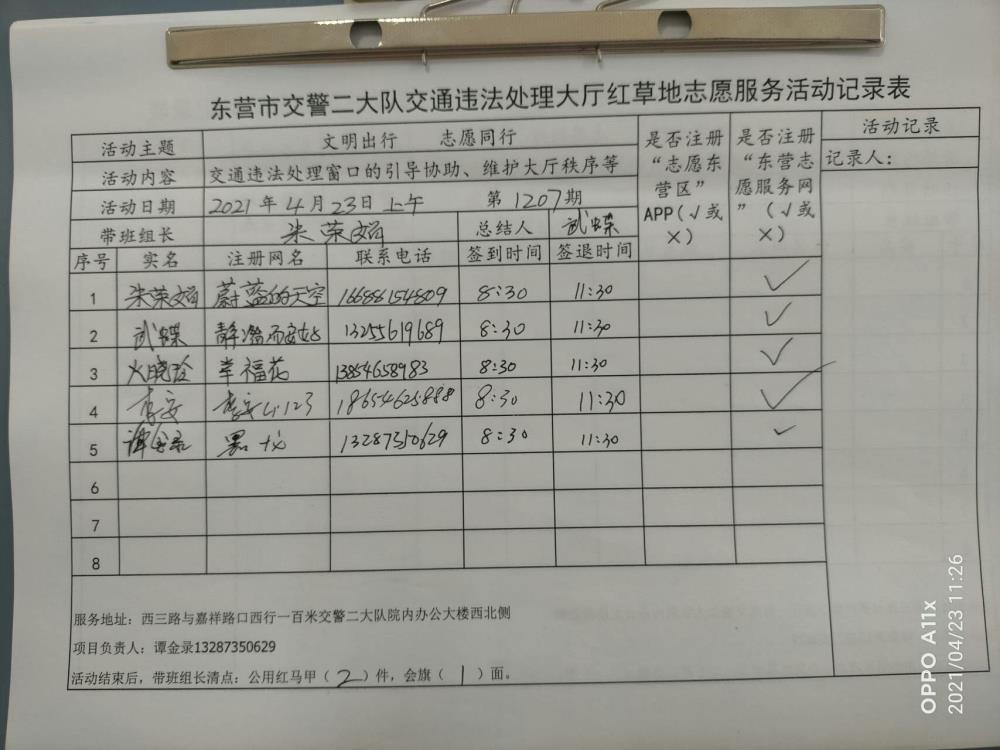 东营市交警二大队交通违法处理大厅红草地志愿服务活动记录表
活动主题 文明出行 志愿同行 是否注册“志愿东营区”APP(√或×) 是否注册“东营志愿服务网”(√或×) 活动记录
活动内容 交通违法处理窗口的引导协助、维护大厅秩序等 记录人:
活动日期 2021年4月23日上午 第1207期
带班组长 朱荣 总结人 武蝶
序号 实名 注册网名 联系电话 签到时间 签退时间
1 朱荣 蔚蓝的天空 16688154809 8:30 11:30 ✓
2 武蝶 13255619689 8:30 11:30 ✓
3 火晓玲 幸福花 13854658983 8:30 11:30 ✓
4 李安 李安 123 18654625888 8:30 11:30 ✓
5 谭金录 黑龙 13287350629 8:30 11:30 ✓
6
7
8
服务地址:西三路与嘉祥路口西行一百米交警二大队院内办公大楼西北侧
项目负责人:谭金录13287350629
活动结束后,带班组长清点:公用红马甲(2)件,会旗(1)面。
OPPO A11x
2021/04/23 11:26